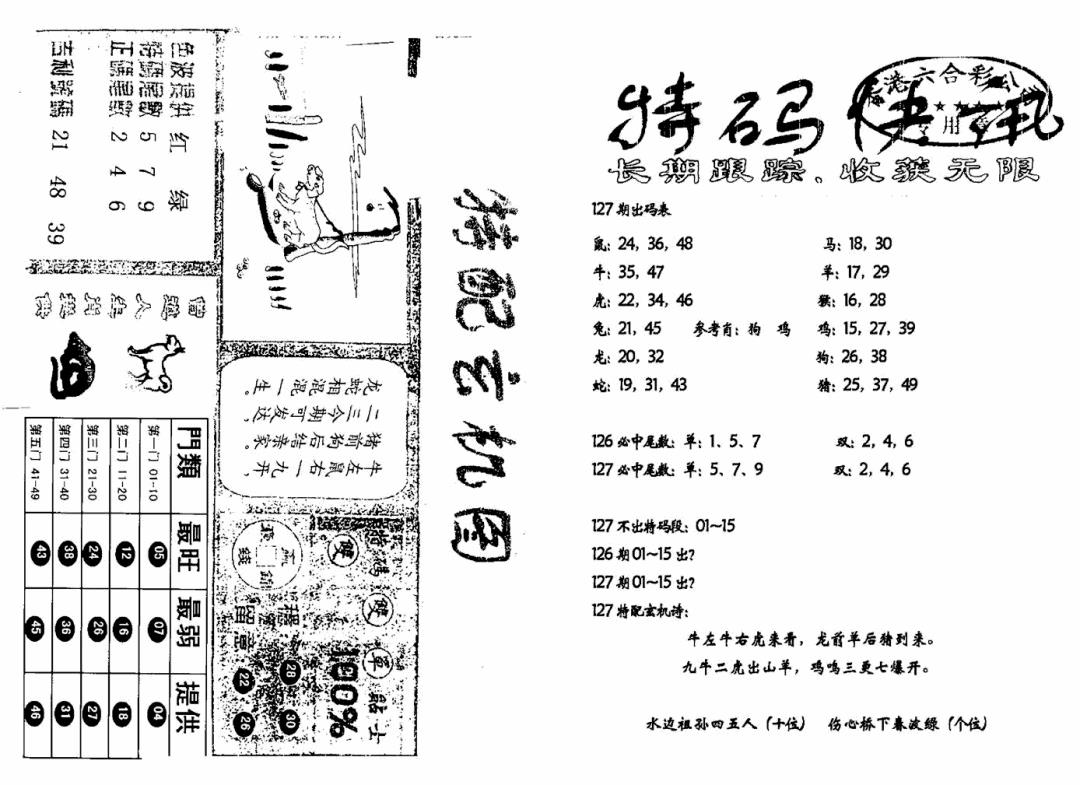 特码快讯
香港六合彩公司
专用章
长期跟踪、收获无限
127期出码表
鼠: 24, 36, 48 马: 18, 30
牛: 35, 47 羊: 17, 29
虎: 22, 34, 46 猴: 16, 28
兔: 21, 45 参考肖: 狗 鸡 鸡: 15, 27, 39
龙: 20, 32 狗: 26, 38
蛇: 19, 31, 43 猪: 25, 37, 49
126 必中尾数: 单: 1、5、7 双: 2, 4, 6
127 必中尾数: 单: 5、7、9 双: 2, 4, 6
127 不出特码段: 01~15
126 期 01~15 出?
127 期 01~15 出?
127 特配玄机诗:
牛左牛右虎来看, 龙前羊后猪到来。
九牛二虎出山羊, 鸡鸣三更七爆开。
水边祖孙四五人 (十位) 伤心桥下春波绿 (个位)
特配玄机图
色波提供 红 绿
特碼尾數 5 7 9
正碼尾數 2 4 6
吉利號碼 21 48 39
牛左鼠右一九开，
猪前狗后结亲家。
二三今期可发达，
龙蛇相混混一生。
門類 最旺 最弱 提供
第一门 01-10 05 07 04
第二门 11-20 12 16 18
第三门 21-30 24 26 27
第四门 31-40 38 36 31
第五门 41-49 43 45 46
特碼
雙
雙
單
貼士
100%
留意
28 30
22 26